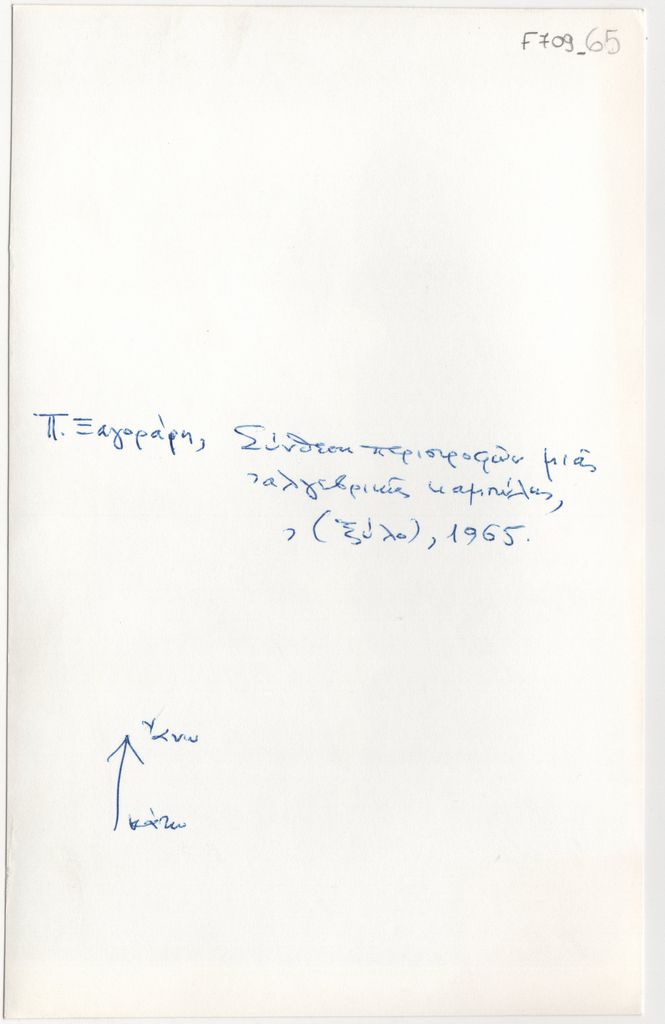 F709_65
Π. Ξαγοράρη, Σύνθεση περιστροφῶν μιᾶς
ἀλγεβρικῆς καμπύλης,
, (ξύλο), 1965.
ἄνω
κάτω